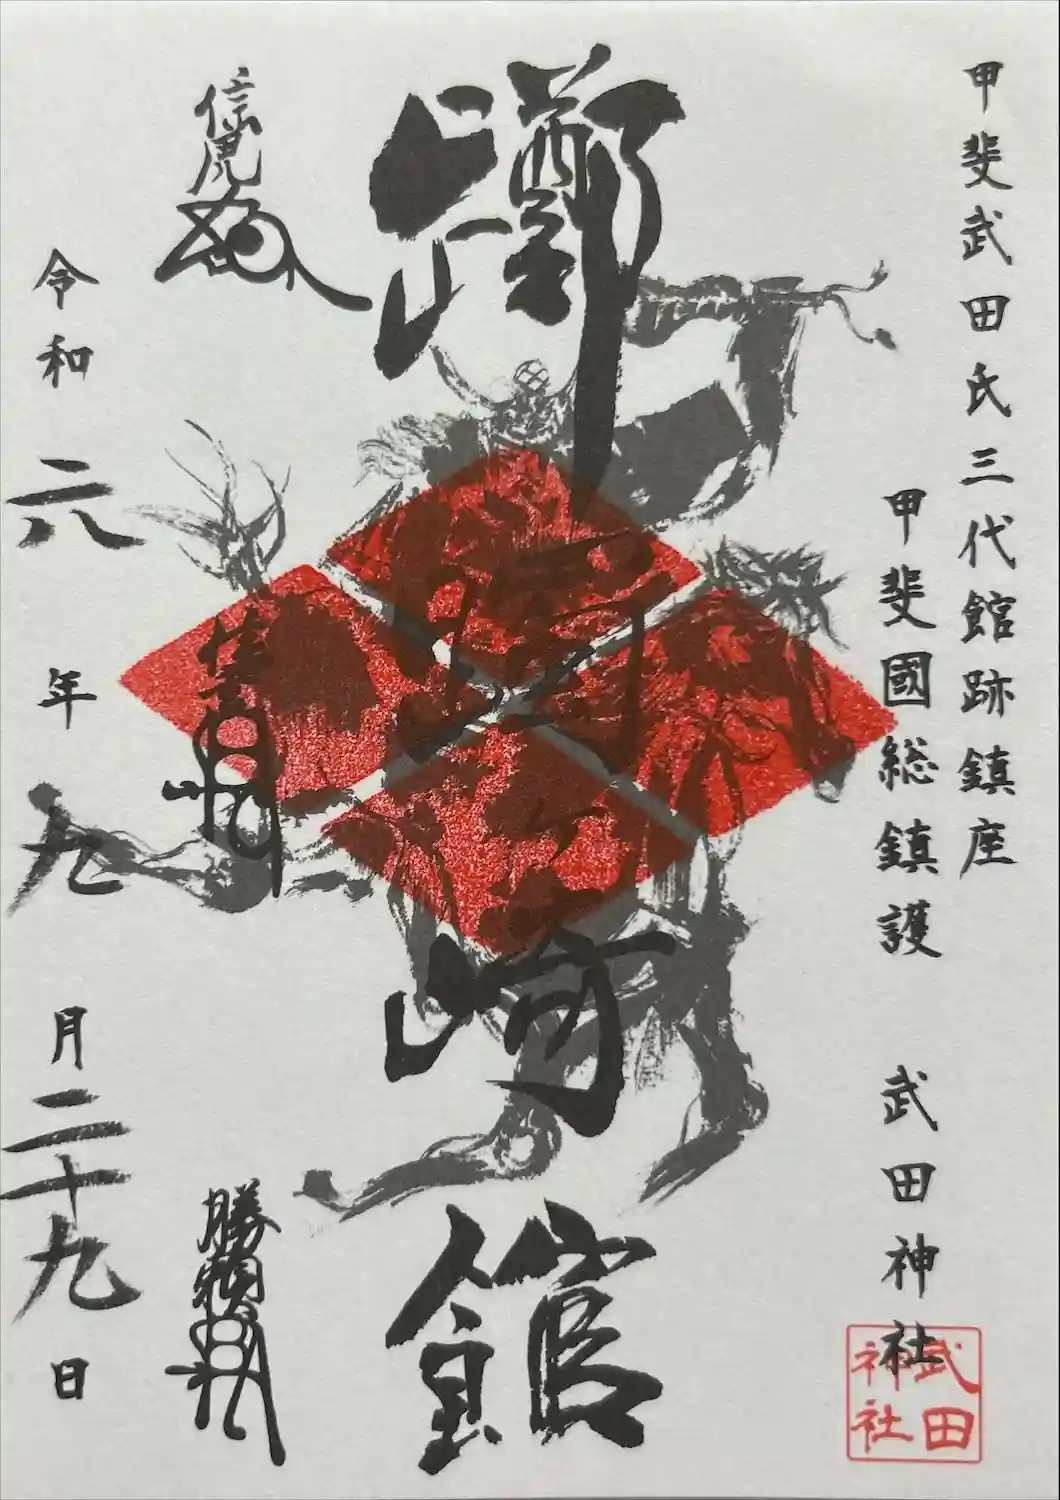 甲斐武田氏三代館跡鎮座
甲斐國総鎮護　武田神社
躑躅ヶ崎館
信虎
勝頼
令和六年九月二十九日
武田
神社